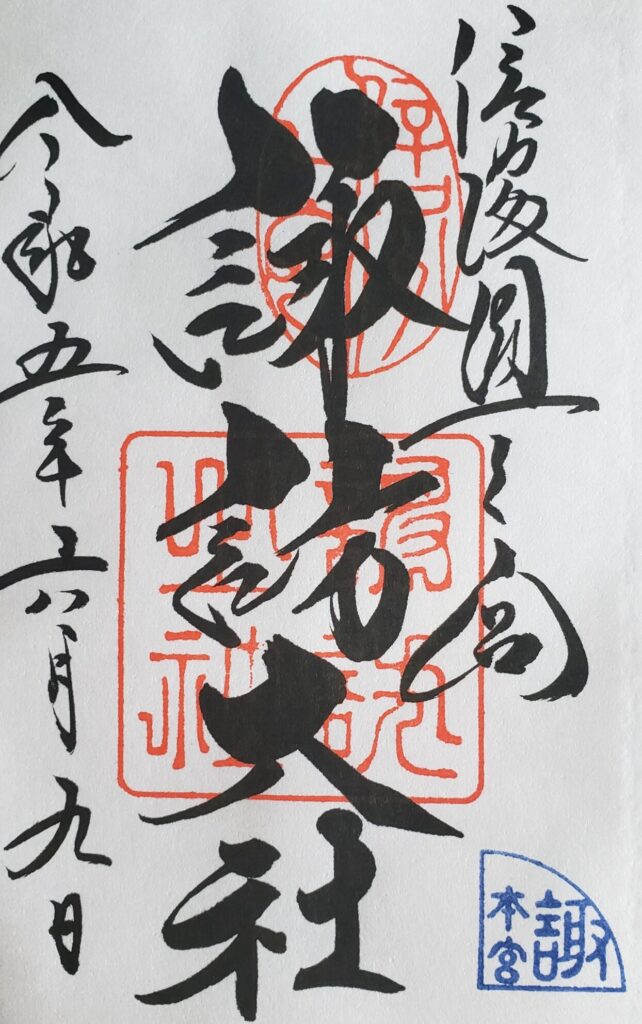 信濃國一之宮
諏訪大社
令和五年六月九日
諏
本宮